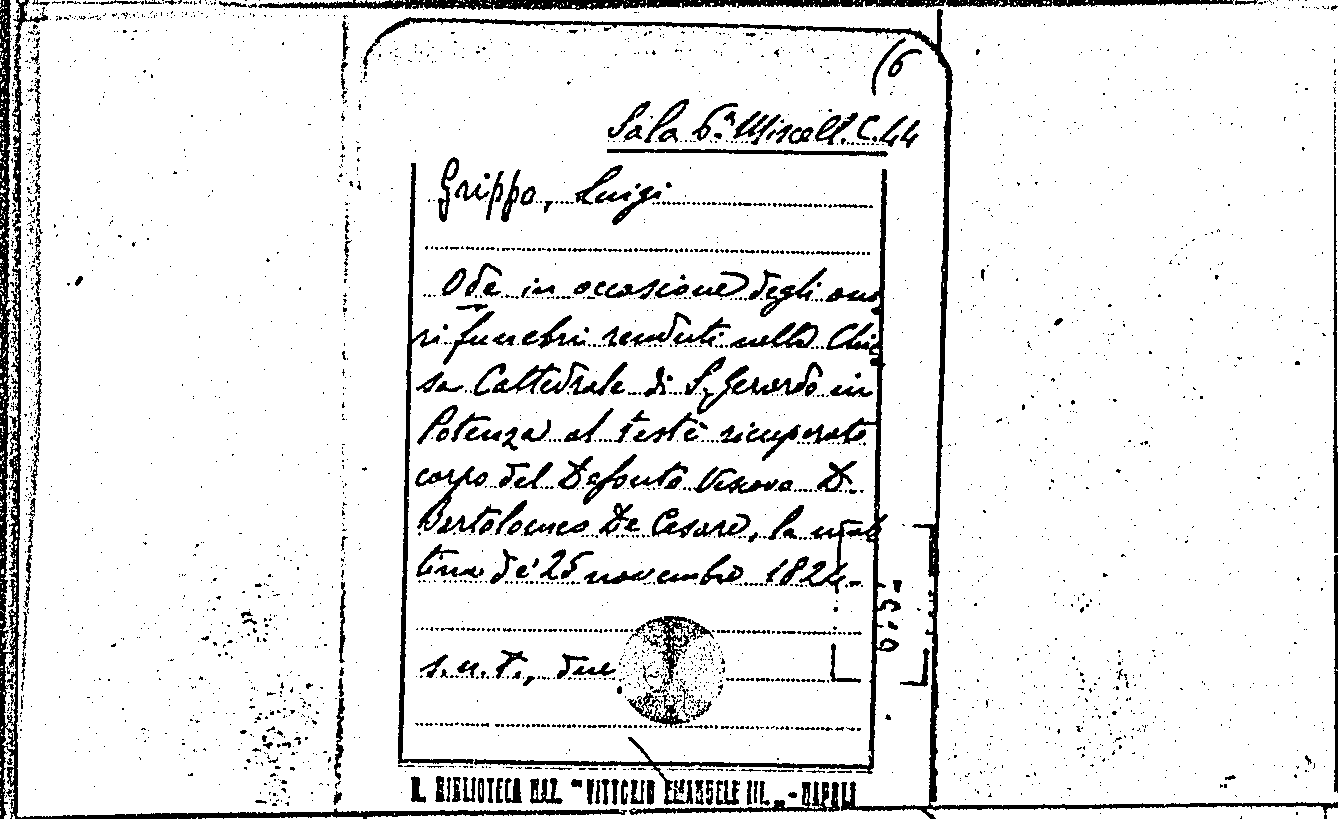 (6
Sala 6.ª Miscell. C.44
Grippo, Luigi
Ode in occasione degli ono
ri funebri renduti nella Chie
sa Cattedrale di S. Gerardo in
Potenza al testè ricuperato
corpo del Defonto Vescovo D.
Bartolomeo De Cesare, la mat
tina de' 25 novembre 1824.
s.n.t., due
R. BIBLIOTECA NAZ. "VITTORIO EMANUELE III." - NAPOLI